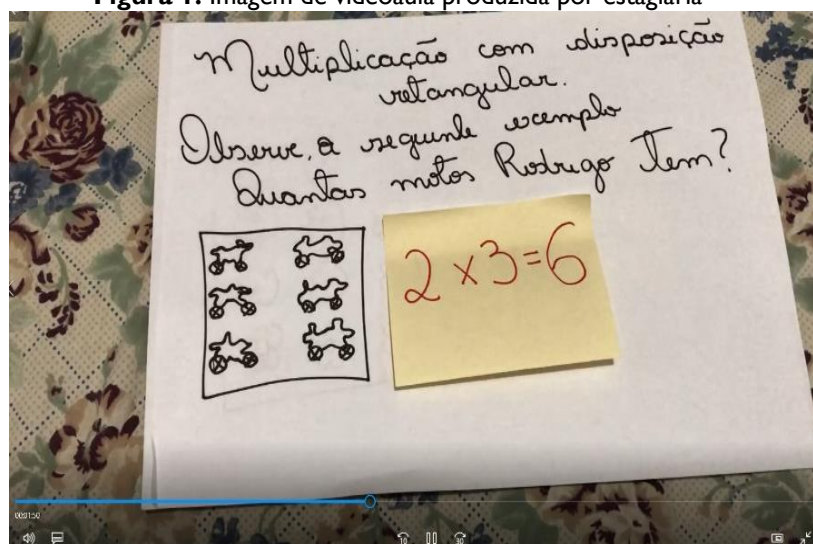 Figura 1. Imagem de videoaula produzida por estagiária
Multiplicação com disposição
retangular.
Observe, a seguinte exemplo
Quantas motos Rodrigo tem?
2 x 3 = 6
00:01:50
10
30